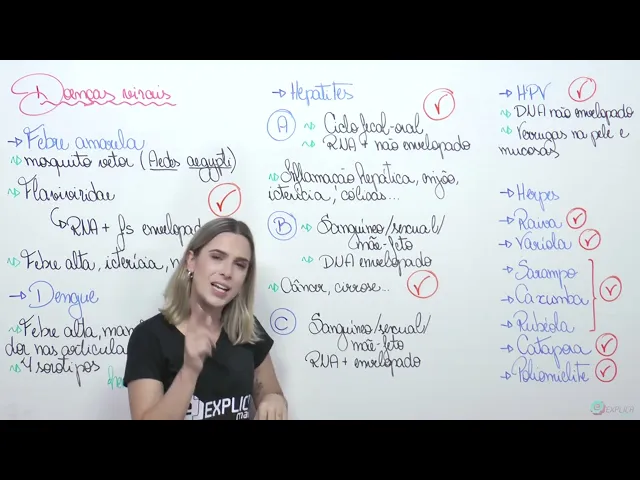 Doenças virais
→ Febre amarela
mosquito vetor (Aedes aegypti)
Flaviviridae
RNA + fs envelopad
Febre alta, icterícia, n
→ Dengue
Febre alta, man
dor nas articula
4 sorotipos
→ Hepatites
A
Ciclo fecal-oral
RNA + não envelopado
Inflamação hepática, enjôo,
icterícia, cólicas...
B
Sanguíneo/sexual/
mãe-feto
DNA envelopado
Câncer, cirrose...
C
Sanguíneo/sexual/
mãe-feto
RNA + envelopado
→ HPV
DNA não envelopado
Verrugas na pele e
mucosas
→ Herpes
→ Raiva
→ Varíola
→ Sarampo
→ Caxumba
→ Rubéola
→ Catapora
→ Poliomielite
EXPLICA
EXPLICA